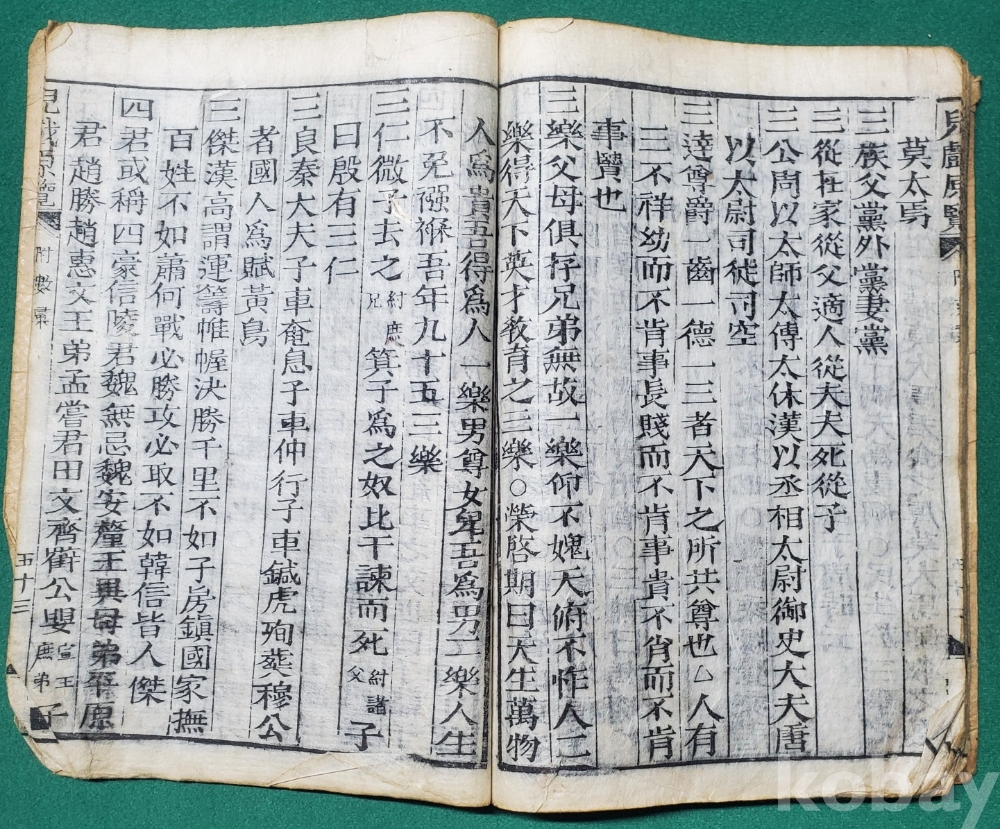 兒戱原覽
莫太焉
三族父黨外黨妻黨
三從在家從父適人從夫夫死從子
三公周以太師太傅太休漢以丞相太尉御史大夫唐
以太尉司徒司空
三達尊爵一齒一德一三者天下之所共尊也○人有
三不祥幼而不肯事長賤而不肯事貴不肖而不肯
事賢也
三樂父母俱存兄弟無故一樂仰不愧天俯不怍人二
樂得天下英才教育之三樂○榮啓期曰天生萬物
人爲貴吾得爲人一樂男尊女卑吾爲男二樂人生
不免襁褓吾年九十五三樂
三仁微子去之紂庶兄箕子爲之奴比干諫而死紂諸父子
曰殷有三仁
三良秦大夫子車奄息子車仲行子車鍼虎殉葬穆公
者國人爲賦黃鳥
三傑漢高謂運籌帷幄決勝千里不如子房鎭國家撫
百姓不如蕭何戰必勝攻必取不如韓信皆人傑
四君或稱四豪信陵君魏無忌魏安釐王異母弟平原
君趙勝趙惠文王弟孟嘗君田文齊薛公嬰宣王庶弟子
兒戱原覽 附數彙 五十三
kobay